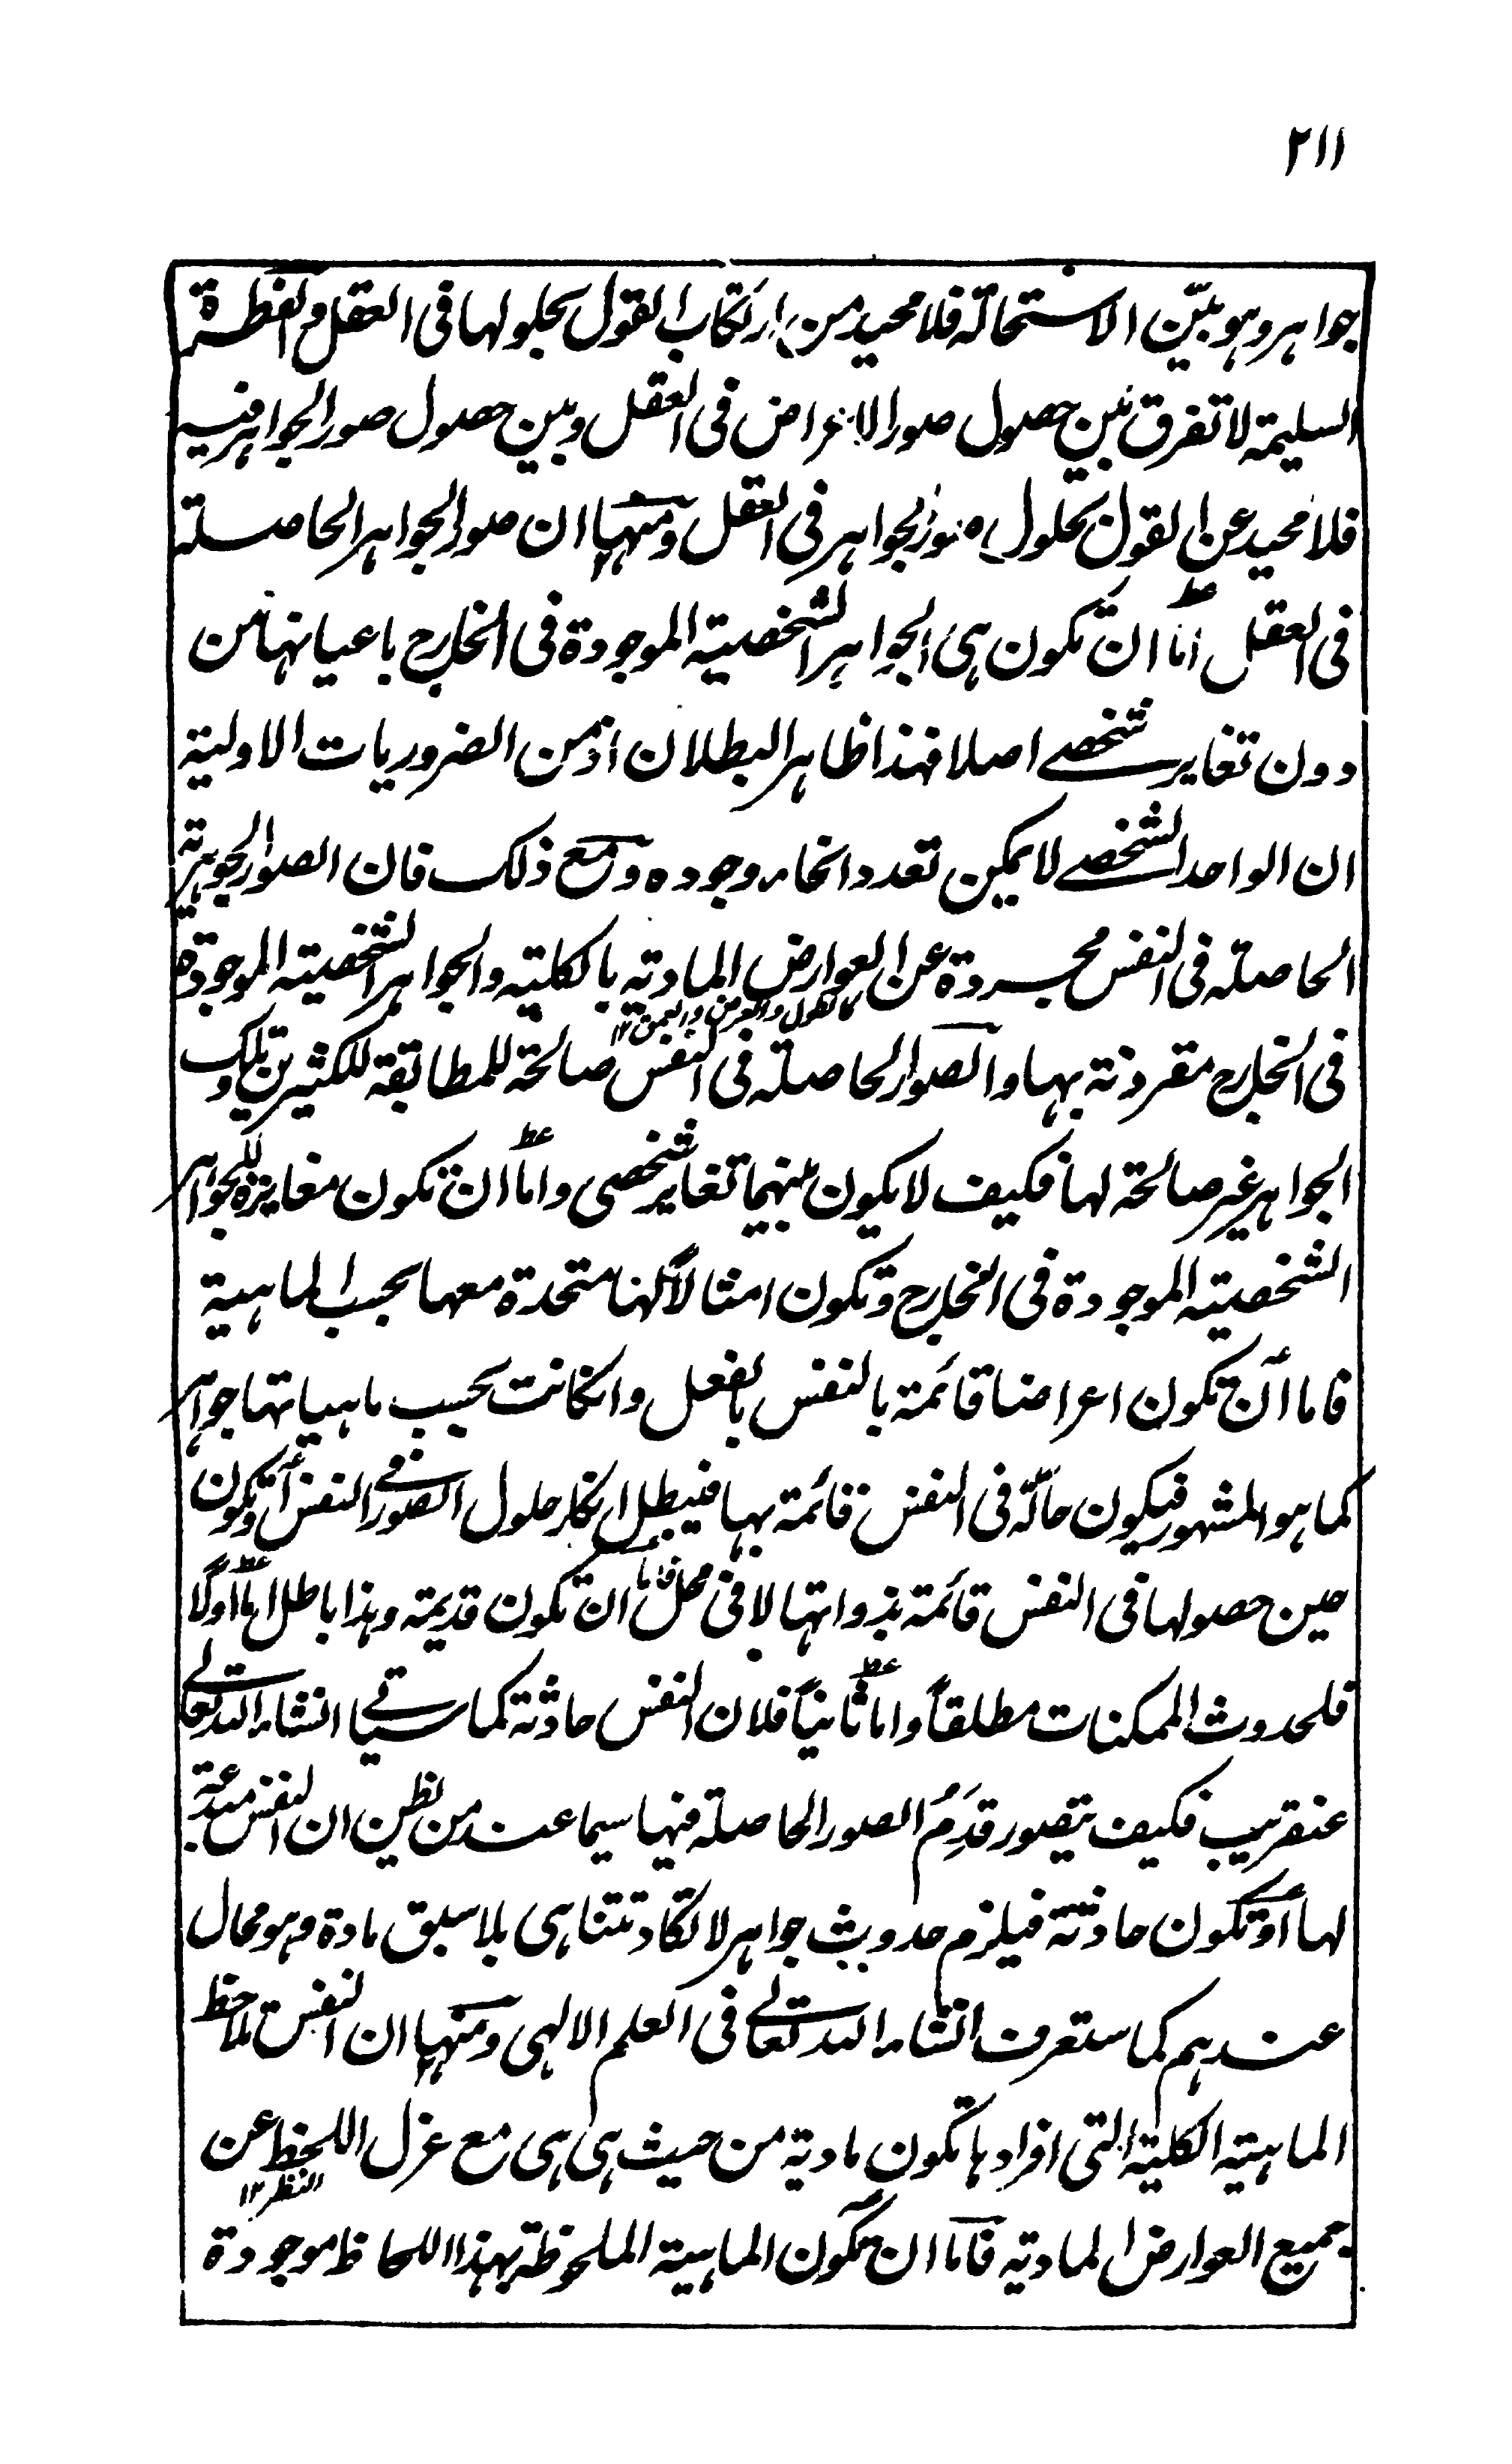 ٢١١
جواهر وهو بيّن الاستحالة فلا محيد من ارتكاب القول بحلولها فى العقل و الفطرة
السليمة لا تفرق بين حصول صور الاعراض فى العقل وبين حصول صور الجواهر فيه
فلا محيد عن القول بحلول صور الجواهر فى العقل ومنها ان صور الجواهر الحاصلة
فى العقل اما ان تكون هى الجواهر الشخصية الموجودة فى الخارج باعيانها من
دون تغاير شخصے اصلا فهذا ظاهر البطلان اذ من الضروريات الاولية
ان الواحد الشخصے لا يمكن تعدد انحاء وجوده ومع ذلك فان الصور الجوهرية
الحاصلة فى النفس مجردة عن العوارض المادية بالكلية والجواهر الشخصية الموجودة
كالطول والعرض والعمق ١٢
فى الخارج مقرونة بها والصور الحاصلة فى النفس صالحة للمطابقة للكثيرين وتلك
الجواهر غير صالحة لها فكيف لا يكون بينهما تغاير شخصى واما ان تكون مغايرة للجواهر
الشخصية الموجودة فى الخارج وتكون امثالاً لها متحدة معها بحسب الماهية
فاما أن تكون اعراضا قائمة بالنفس بالفعل وانكانت بحسب ماهياتها جواهر
كما هو المشهور فيكون حالّة فى النفس قائمة بها فيبطل انكار حلول الصور فے النفس أو تكون
حين حصولها فى النفس قائمة بذواتها لا فى محل فاما ان تكون قديمة وهذا باطل اما اولاً
فلحدوث الممكنات مطلقاً واما ثانياً فلان النفس حادثة كما سياتے انشاء الله تعالے
عنقريب فكيف يتصور قدَم الصور الحاصلة فيها سيما عند من يظن ان النفس مبدعة
لها أو تكون حادثة فيلزم حدوث جواهر لا تكاد تتناهى بلا سبق مادة وهو محال
عندهم كما ستعرف انشاء الله تعالے فى العلم الالهى ومنها ان النفس تلاحظ
الماهية الكلية التى افرادها تكون مادية من حيث هى هى مع عزل اللحظ عن
النظر ١٢
جميع العوارض المادية فاما ان تكون الماهية الملحوظة بهذا اللحاظ موجودة